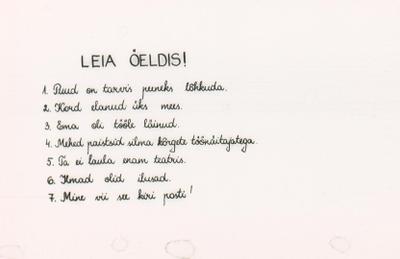 LEIA ÖELDIS!
1. Puud on tarvis peeneks lõhkuda.
2. Kord elanud üks mees.
3. Ema oli tööle läinud.
4. Mehed paistsid silma kõrgete töönäitajatega.
5. Ta ei laula enam teatris.
6. Ilmad olid ilusad.
7. Mine vii see kiri posti!